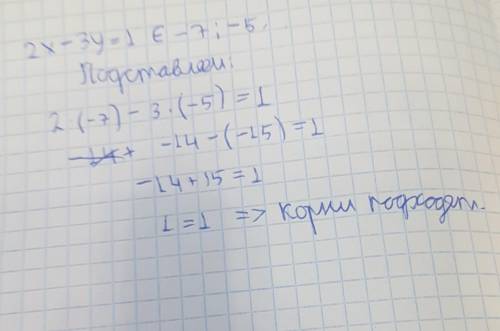 2x-3y=1 ∈ -7; -5.
Подставляем:
2·(-7)-3·(-5)=1
-14-(-15)=1
-14+15=1
1=1 => корни подходят.